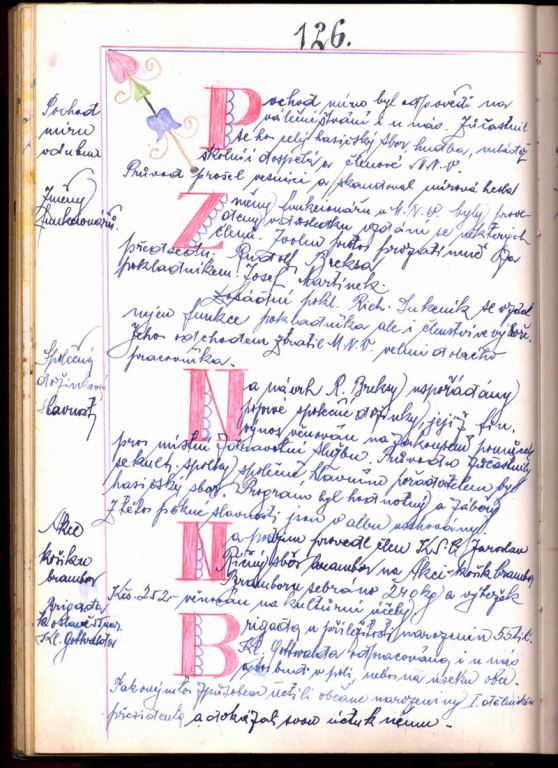 126.
Pochod
míru
v dubnu
Pochod míru byl odpovědí na
válečné štvaní i u nás. Zúčastnil
se ho celý hasičský sbor hudba, mládež
školní i dospělá a členové N.V.
Průvod prošel vesnicí a skandoval mírová hesla
Změny
funkcionářů.
Změny funkcionářů u M.N.V. byly prove-
deny v důsledku vzdání se některých
členů. Zvolen
předsedou: Rudolf
pokladníkem: Josef Martinek.
pokl. Rich. Lukeník se vzdal
nejen funkce pokladníka ale i členství ve výboře.
Jeho odchodem ztratil M.N.V. velmi dobrého
pracovníka.
Společný
dožínkový
slavnost
Na návrh R. uspořádány
poprvé společné dožinky, jejíž fin.
výnos věnován na zakoupení pomůcek
pro místní zdravotní službu. Průvodu zúčastnily
se kult. spolky společně hlavním pořadatelem byl
hasičský sbor. Program byl hodnotný a zábavy
Z této pěkné slavnosti jsou v albu uschovány.
Akce
košíku
brambor
Na podzim provedl člen K.S.Č. Jaroslav
sběr brambor na Akci-košík brambor
Brambor sebráno 240 kg a výtěžek
Kčs 252 věnován na kulturní účely.
Brigáda
k oslavě
Kl. Gottwalda
Brigáda u příležitosti narozenin 55 let
Kl. Gottwalda odpracována i u nás
v poli, nebo na úseku obce.
Takovýmto způsobem uctili občané narozeniny I. dělnického
presidenta a dokázali svou úctu k němu.